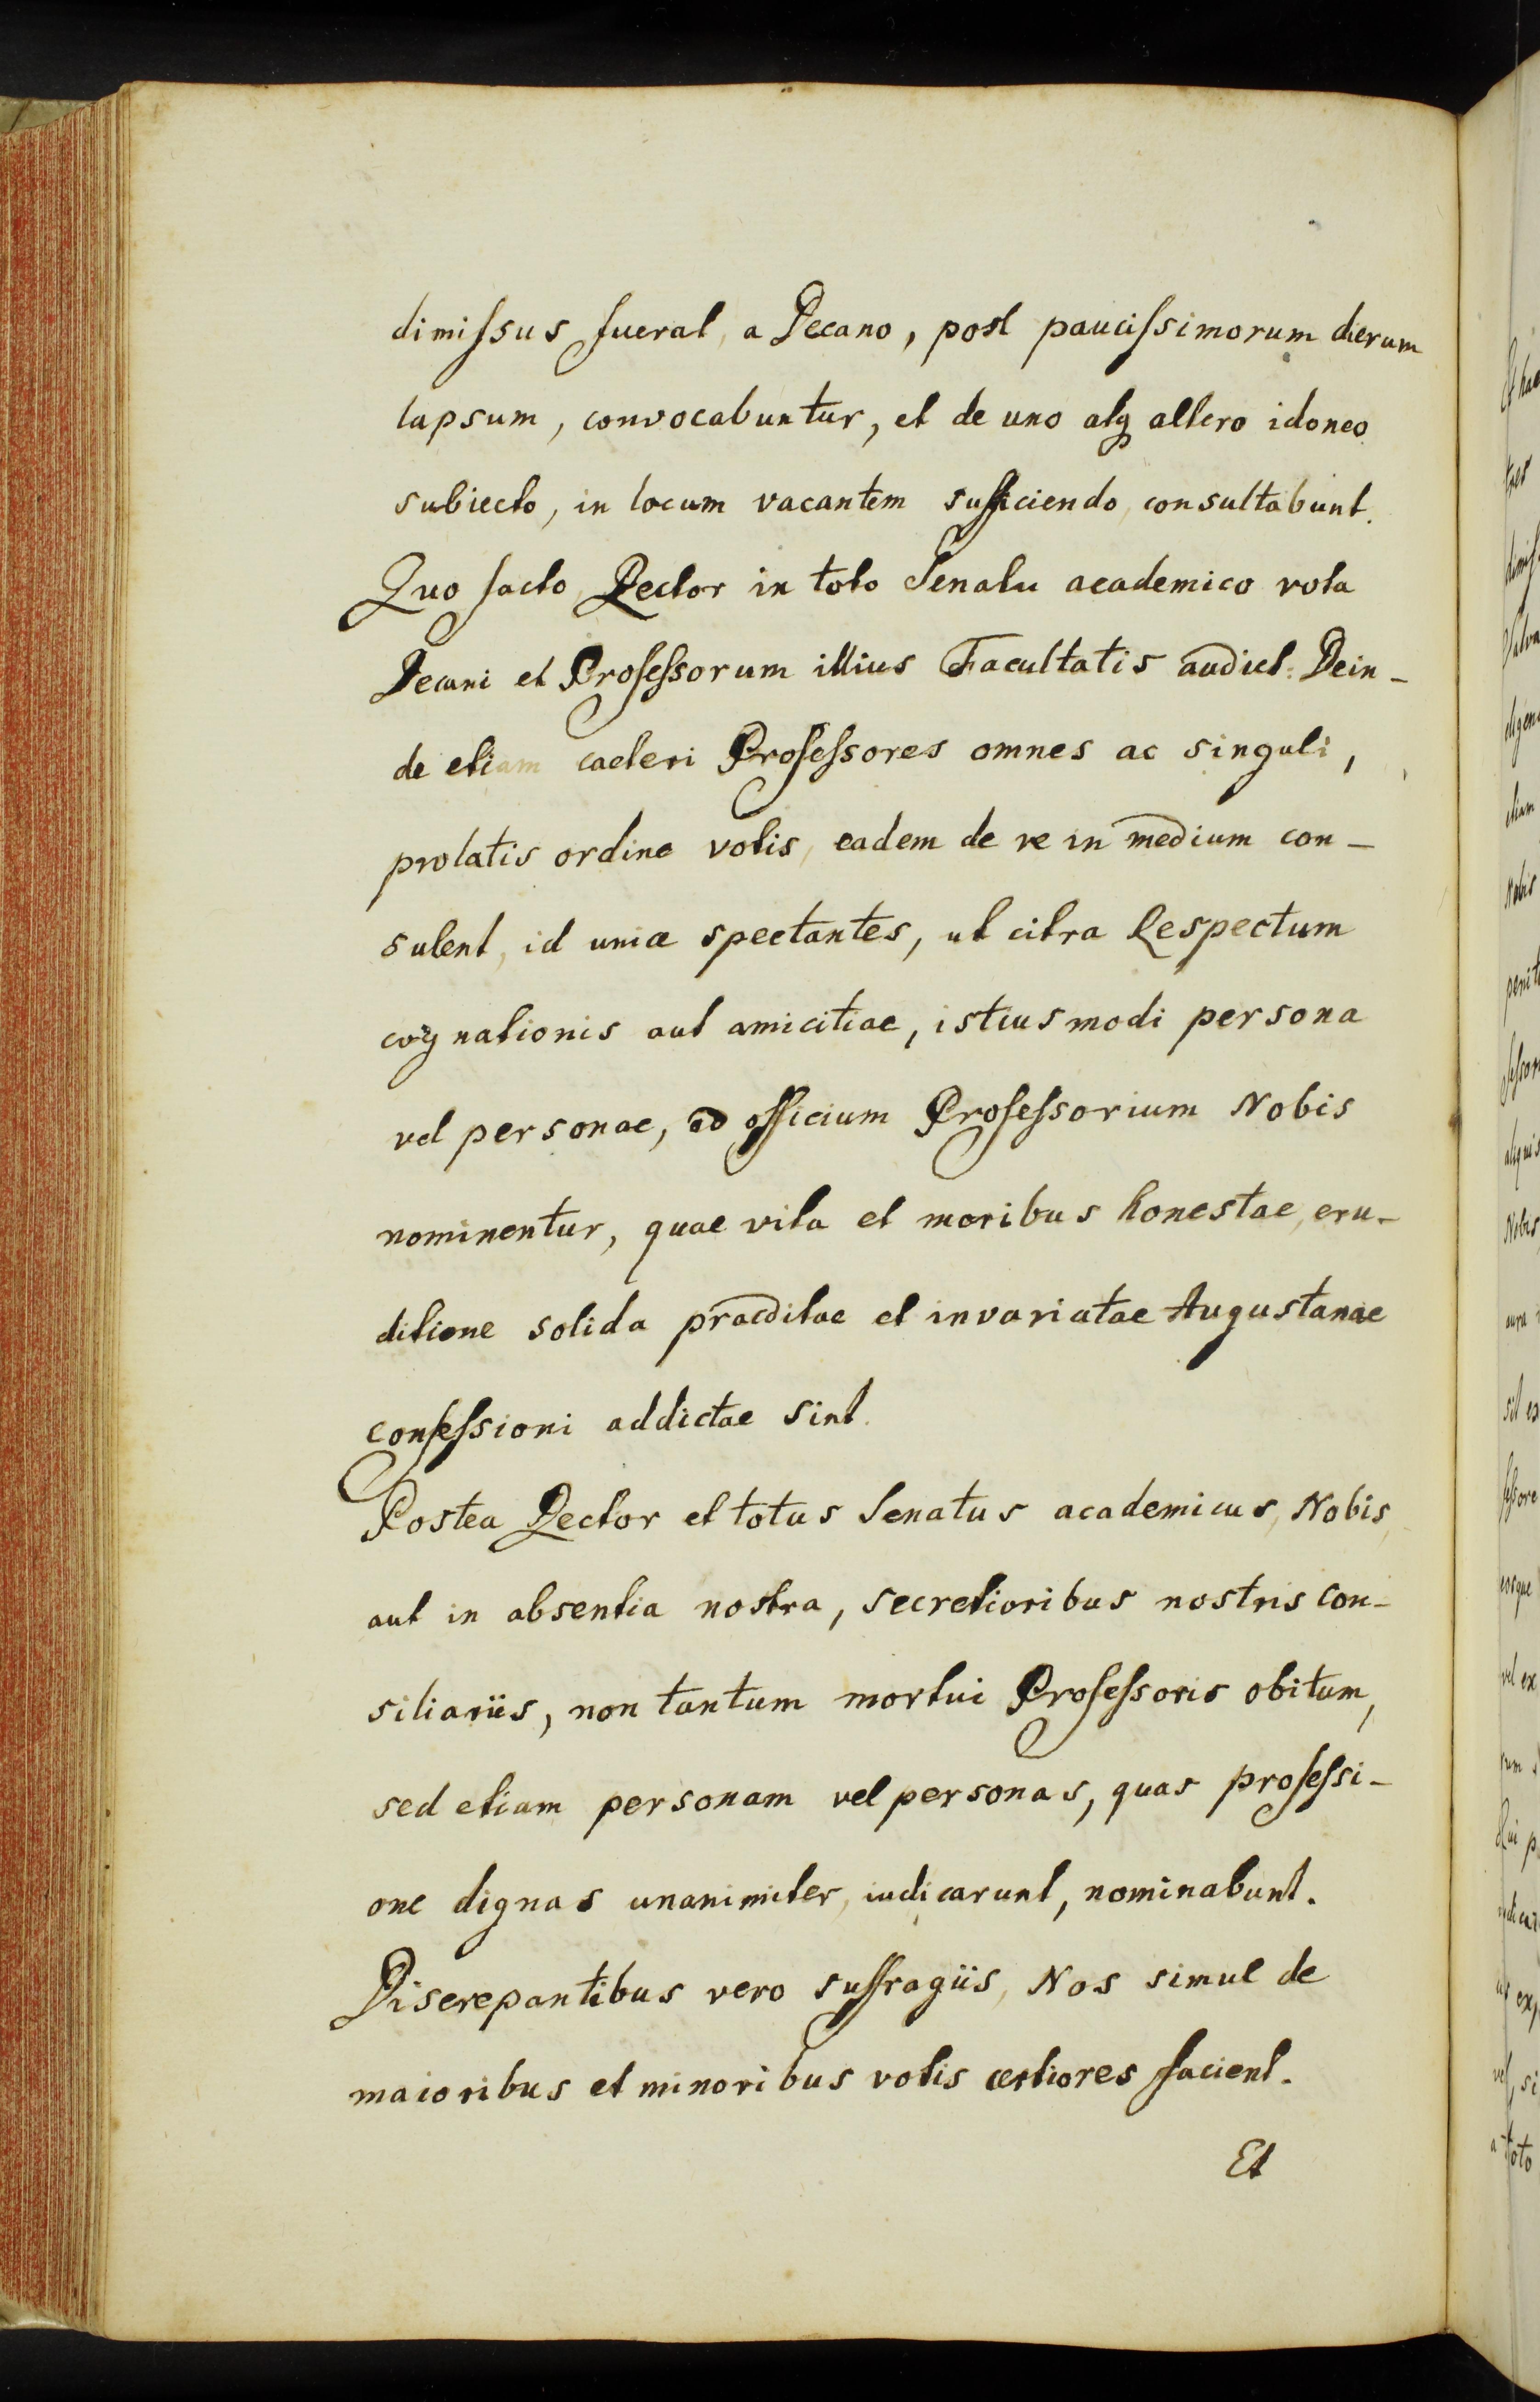 dimissus fuerat, a Decano, post paucissimorum dierum
lapsum, convocabuntur, et de uno atq altero idoneo
subiecto, in locum vacantem sufficiendo, consultabunt.
Quo facto, Rector in toto Senatu academico vota
Decani et Professorum illius Facultatis audiet. Dein-
de etiam caeteri Professores omnes ac singuli,
prolatis ordine votis, eadem de re in medium con-
sulent, id unice spectantes, ut citra Respectum
cognationis aut amicitiae, istiusmodi persona
vel personae, ad officium Professorium Nobis
nominentur, quae vita et moribus honestae, eru-
ditione solida praeditae et invariatae Augustanae
confessioni addictae sint.
Postea Rector et totus Senatus academicus, Nobis,
aut in absentia nostra, secretioribus nostris con-
siliariis, non tantum mortui Professoris obitum,
sed etiam personam vel personas, quas professi-
one dignas unanimiter, iudicarunt, nominabunt.
Discrepantibus vero suffragiis, Nos simul de
maioribus et minoribus votis certiores facient.
Et